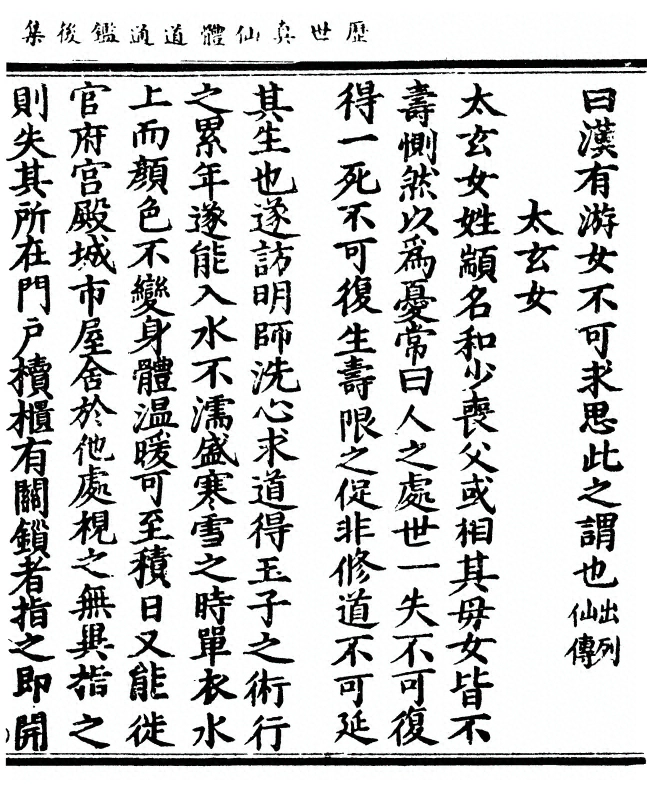 歷世真仙體道通鑑後集
曰漢有游女不可求思此之謂也出列仙傳
太玄女
太玄女姓顓名和少喪父或相其母女皆不
壽惻然以為憂常曰人之處世一失不可復
得一死不可復生壽限之促非修道不可延
其生也遂訪明師洗心求道得玉子之術行
之累年遂能入水不濡盛寒雪之時單衣水
上而顏色不變身體温暖可至積日又能徙
官府宮殿城市屋舍於他處視之無異指之
則失其所在門戶櫝櫃有關鎖者指之即開